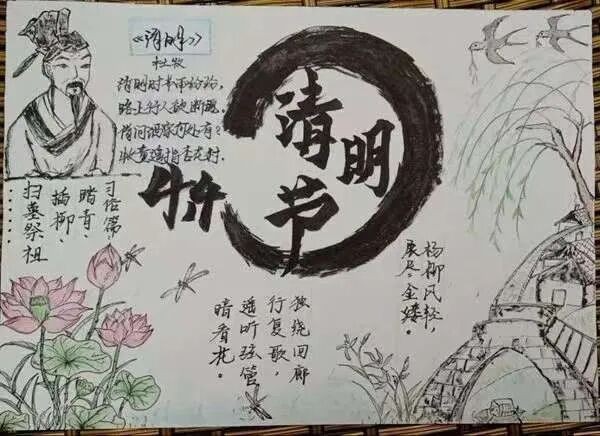 《清明》
杜牧
清明时节雨纷纷，
路上行人欲断魂。
借问酒家何处有？
牧童遥指杏花村。
清明节
习俗篇
踏青、
插柳、
扫墓祭祖
……
独绕回廊
行复歇，
遥听弦管
暗看花。
杨柳风轻，
展尽金缕。